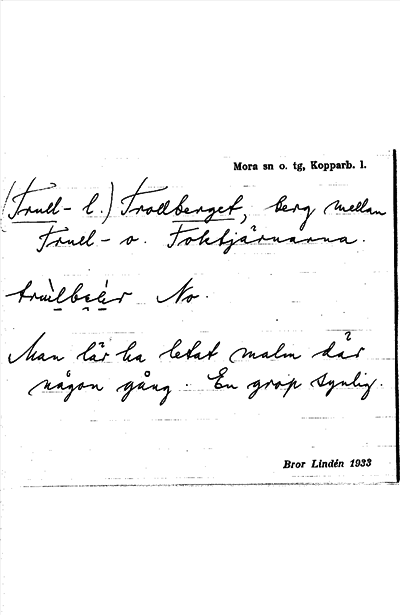 Mora sn o. tg, Kopparb. l.
(Trull- l.) Trollberget, berg mellan
Trull- o. Foktjärnarna.
No.
Man lär ha letat malm där
någon gång. En grop synlig.
Bror Lindén 1933